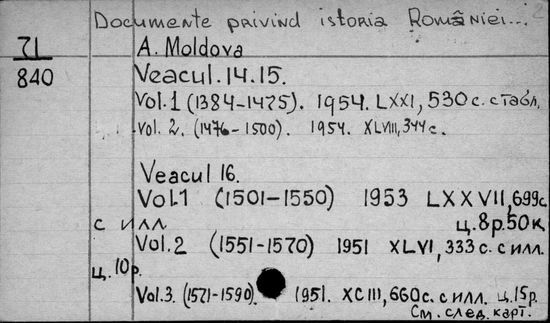 Documente privind istoria României...
71
840
A. Moldova
Veacul.14.15.
Vol.1 (1384-1475). 1954. LXXI, 530 с. с табл.
Vol. 2. (1476-1500). 1954. XLVIII, 344 с.
Veacul 16.
Vol.1 (1501-1550) 1953 LXXVII, 699с.
с илл. ц. 8р. 50к.
Vol.2 (1551-1570) 1951 XLVI, 333 с. с илл.
ц. 10р.
Vol.3. (1571-1590). 1951. XCIII, 660с. с илл. ц. 15р.
См. след. карт.